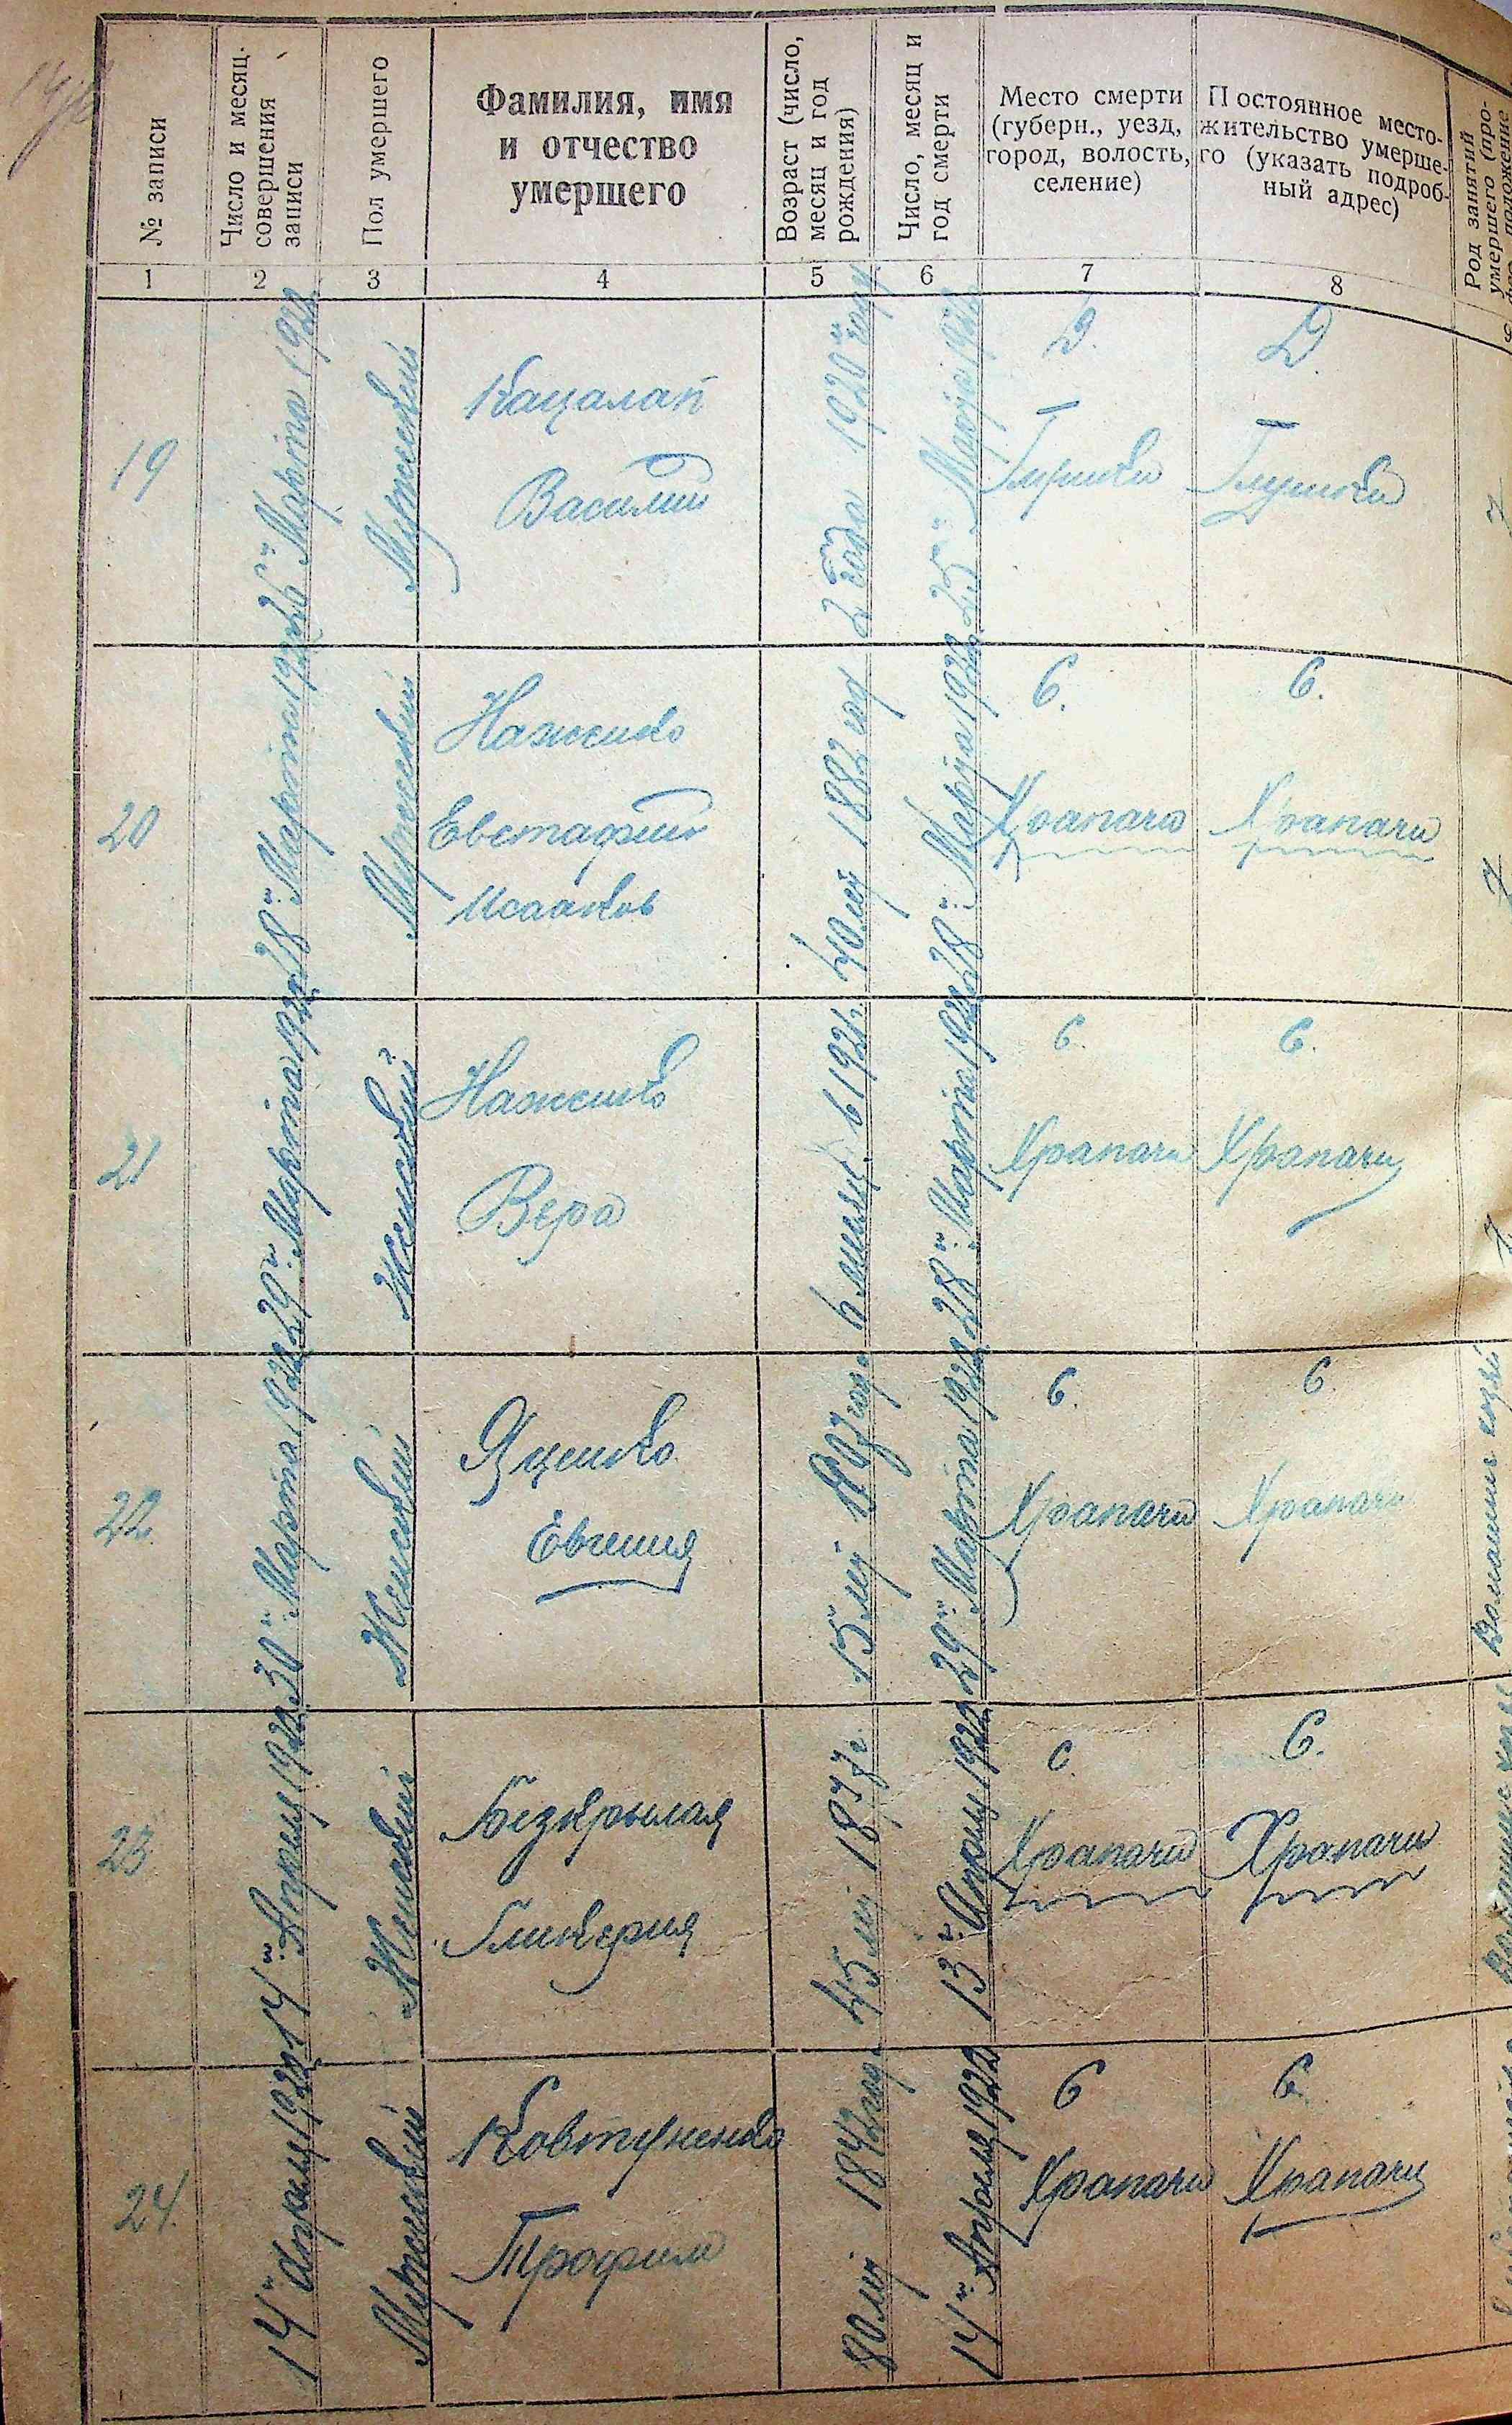 № записи
Число и месяц
совершения
записи
Пол умершего
Фамилия, имя
и отчество
умершего
Возраст (число,
месяц и год
рождения)
Число, месяц и
год смерти
Место смерти
(губерн., уезд,
город, волость,
селение)
Постоянное место-
жительство умерше-
го (указать подроб-
ный адрес)
Род занятий
умершего (про-
1 2 3 4 5 6 7 8
19
26го Марта 1922
Мужеский
Кацалап
Василий
2 года 1920 году
25го Марта 1922
Д.
Глушки
Д.
Глушки
20
28го Марта 1922
Мужеский
Наженко
Евстафий
Исааков
40 лет 1882 год
28го Марта 1922
С.
Храпачи
С.
Храпачи
21
29го Марта 1922
Женский
Наженко
Вера
28го Марта 1922
С.
Храпачи
С.
Храпачи
22
30го Марта 1922
Женский
Яценко
Евгения
15 лет 1907 год
29го Марта 1922
С.
Храпачи
С.
Храпачи
23
14го Апреля 1922
Женский
Безкрылая
Гликерия
45 лет 1877 г.
13го Апреля 1922
С.
Храпачи
С.
Храпачи
24
14го Апреля 1922
Мужеский
Ковтуненко
Трофим
80 лет 1842 год
14го Апреля 1922
С
Храпачи
С.
Храпачи